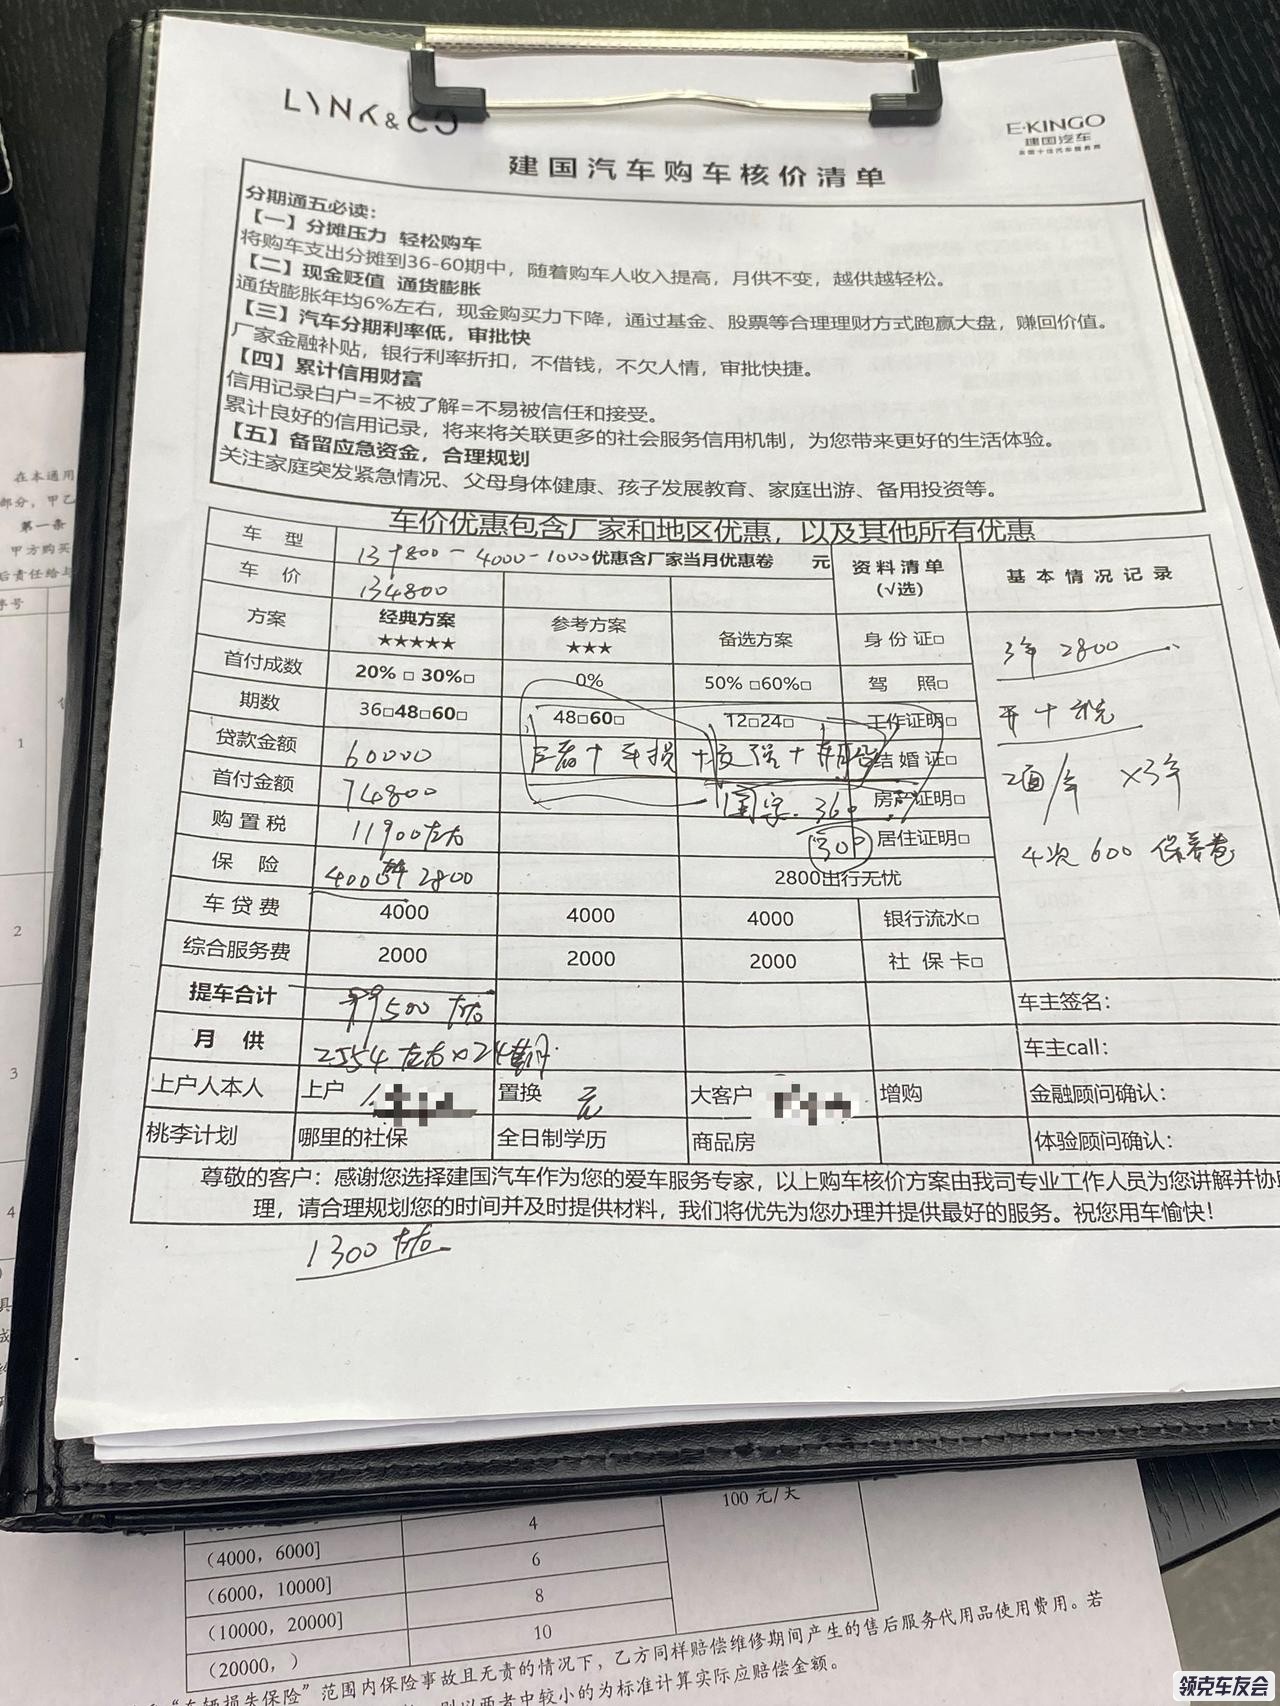 LYNK&CO
E·KINGO
建国汽车
建国汽车购车核价清单
分期通五必读：
【一】分摊压力 轻松购车
将购车支出分摊到36-60期中，随着购车人收入提高，月供不变，越供越轻松。
【二】现金贬值 通货膨胀
通货膨胀年均6%左右，现金购买力下降，通过基金、股票等合理理财方式跑赢大盘，赚回价值。
【三】汽车分期利率低，审批快
厂家金融补贴，银行利率折扣，不借钱，不欠人情，审批快捷。
【四】累计信用财富
信用记录白户=不被了解=不易被信任和接受。
累计良好的信用记录，将来将关联更多的社会服务信用机制，为您带来更好的生活体验。
【五】备留应急资金，合理规划
关注家庭突发紧急情况、父母身体健康、孩子发展教育、家庭出游、备用投资等。
车价优惠包含厂家和地区优惠，以及其他所有优惠
车 型 139800-4000-1000优惠含厂家当月优惠卷 元 资料清单 (√选) 基本情况记录
车 价 134800
方案 经典方案 ★★★★★ 参考方案 ★★★ 备选方案 身份证□ 3年 2800
首付成数 20% □ 30%□ 0% 50% □60%□ 驾 照□
期数 36□48□60□ 48□60□ 12□24□ 工作证明□
贷款金额 60000 三者+车损+交强+ 结婚证□ 2面/年 ×3年
首付金额 74800 360 房产证明□
购置税 11900左右 300 居住证明□ 4次 600 保养卷
保 险 2800 2800出行无忧
车贷费 4000 4000 4000 银行流水□
综合服务费 2000 2000 2000 社保卡□
提车合计 99500 左右 车主签名：
月 供 2554 左右×24 车主call：
上户人本人 上户 置换 元 大客户 增购 金融顾问确认：
桃李计划 哪里的社保 全日制学历 商品房 体验顾问确认：
尊敬的客户：感谢您选择建国汽车作为您的爱车服务专家，以上购车核价方案由我司专业工作人员为您讲解并协
理，请合理规划您的时间并及时提供材料，我们将优先为您办理并提供最好的服务。祝您用车愉快！
1300 左右
在本通用
部分，甲乙
第一条
甲方购买
后责任给与
序号
1
2
3
4
100 元/天
4
（4000，6000] 6
（6000，10000] 8
（10000，20000] 10
（20000，）
“车辆损失保险”范围内保险事故且无责的情况下，乙方同样赔偿维修期间产生的售后服务代用品使用费用。若
则以两者中较小的为标准计算实际应赔偿金额。
领克车友会